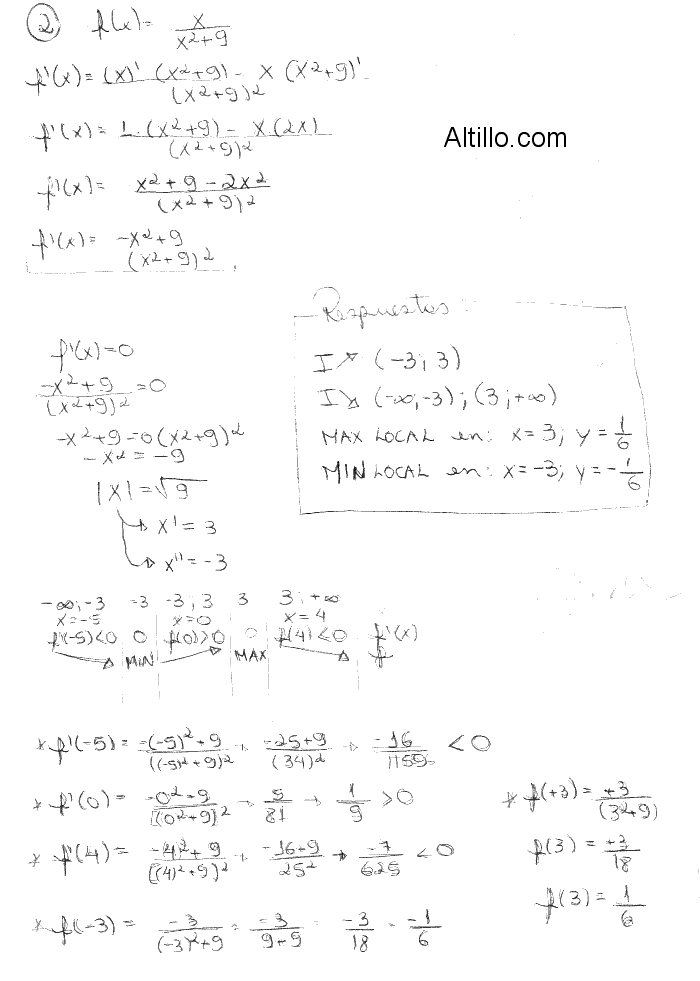 ② f(x) = x/(x²+9)
f'(x) = ((x)' (x²+9) - x (x²+9)')/(x²+9)²
Altillo.com
f'(x) = (1.(x²+9) - x.(2x))/(x²+9)²
f'(x) = (x²+9-2x²)/(x²+9)²
f'(x) = (-x²+9)/(x²+9)²
Respuestas:
I↗ (-3; 3)
I↘ (-∞;-3); (3;+∞)
MAX LOCAL en: x=3; y=1/6
MIN LOCAL en: x=-3; y=-1/6
f'(x)=0
(-x²+9)/(x²+9)² = 0
-x²+9=0(x²+9)²
-x²=-9
|x|=√9
x'=3
x''=-3
-∞;-3 -3 -3;3 3 3;+∞
x=-5 x=0 x=4
f'(-5)<0 0 f(0)>0 0 f(4)<0 f'(x)
MIN MAX f
* f'(-5) = (-(-5)²+9)/((-5)²+9)² → (-25+9)/(34)² → -16/1159 < 0
* f'(0) = (-0²-9)/[(0²+9)]² → 9/81 → 1/9 > 0
* f'(4) = (-4²+9)/[(4)²+9)]² → (-16+9)/25² → -7/625 < 0
* f(-3) = -3/((-3)²+9) = -3/(9+9) = -3/18 = -1/6
* f(+3) = +3/(3²+9)
f(3) = +3/18
f(3) = 1/6